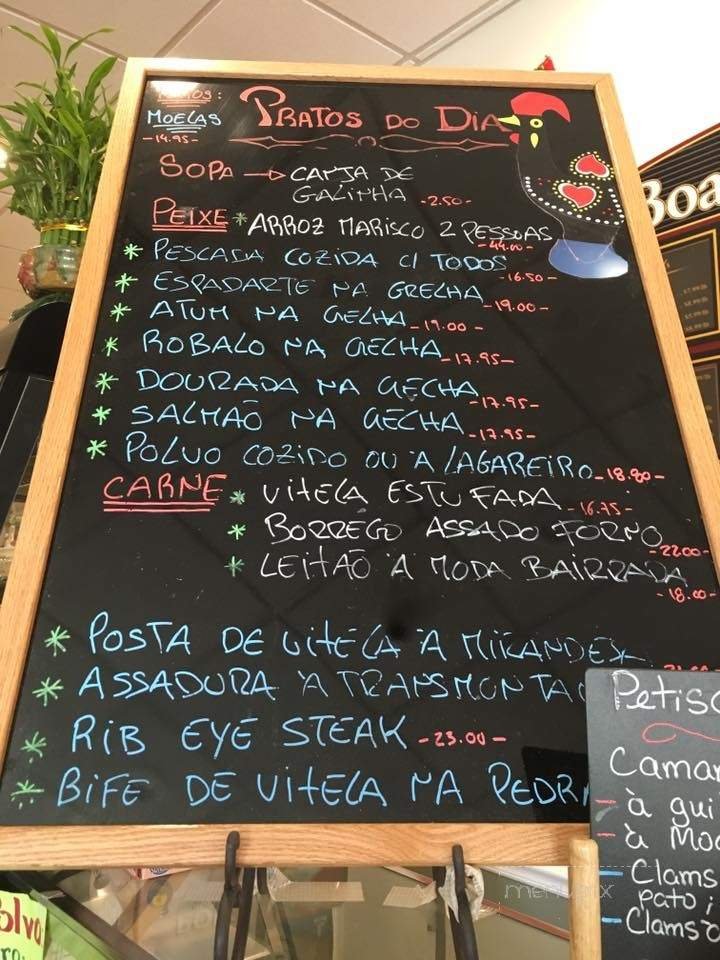 MOELAS
-14.95-
PRATOS DO DIA
SOPA → CANJA DE
GALINHA -2.50-
PEIXE * ARROZ MARISCO 2 PESSOAS
-44.00-
* PESCADA COZIDA C/ TODOS
-16.50-
* ESPADARTE NA GRELHA
-19.00-
* ATUM NA GELHA -19.00-
* ROBALO NA GECHA -17.95-
* DOURADA NA GECHA
-17.95-
* SALMAO NA GECHA
-17.95-
* POLVO COZIDO OU A LAGAREIRO -18.90-
CARNE * VITELA ESTUFADA -16.75-
* BORREGO ASSADO FORNO
-22.00-
* LEITÃO À MODA BAIRRADA
-18.00-
* POSTA DE VITELA À MIRANDESA
* ASSADURA À TRANSMONTA
* RIB EYE STEAK -23.00-
* BIFE DE VITELA NA PEDR
Boa
Petisc
Camar
- à gui
- à Mo
- Clams
pato;
- Clams